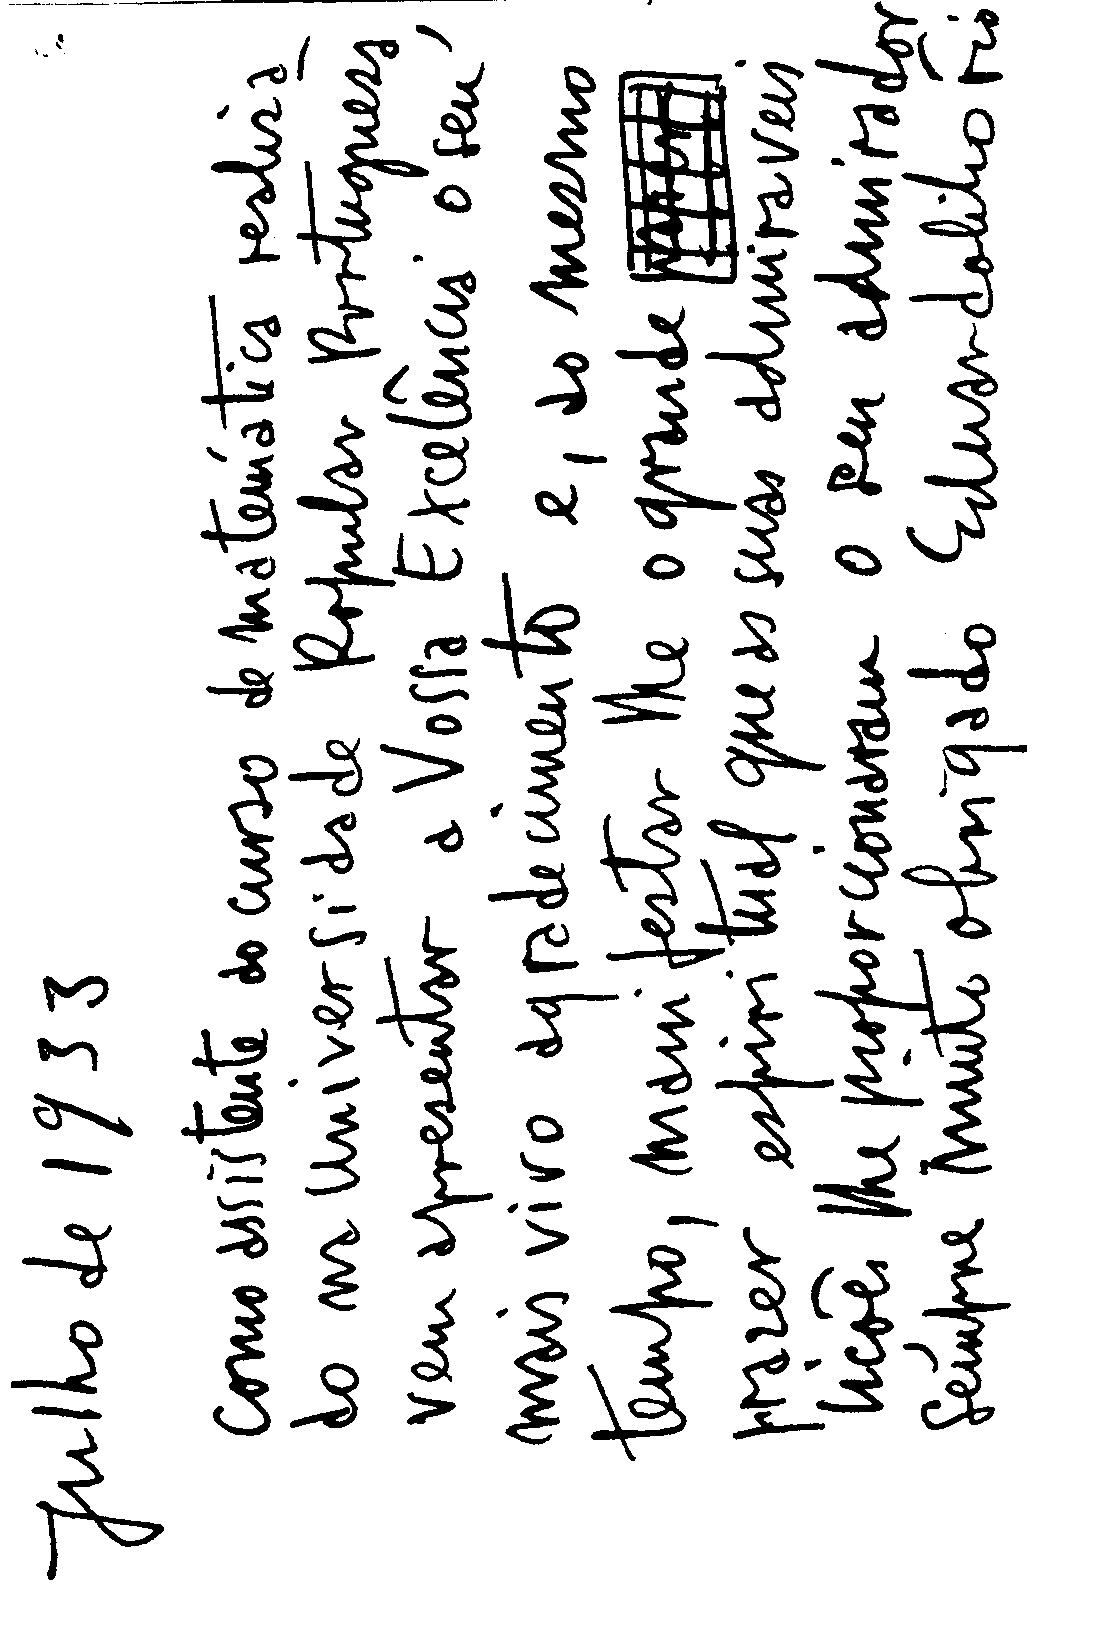 Julho de 1933
Como assistente do curso de matemática realisa
do na Universidade Popular Portuguesa,
vem apresentar a Vossa Excelência o seu
mais vivo agradecimento e, do mesmo
tempo, manifestar lhe o grande
prazer espiritual que as suas admiraveis
lições lhe proporcionaram o seu admirador
Sempre muito obrigado